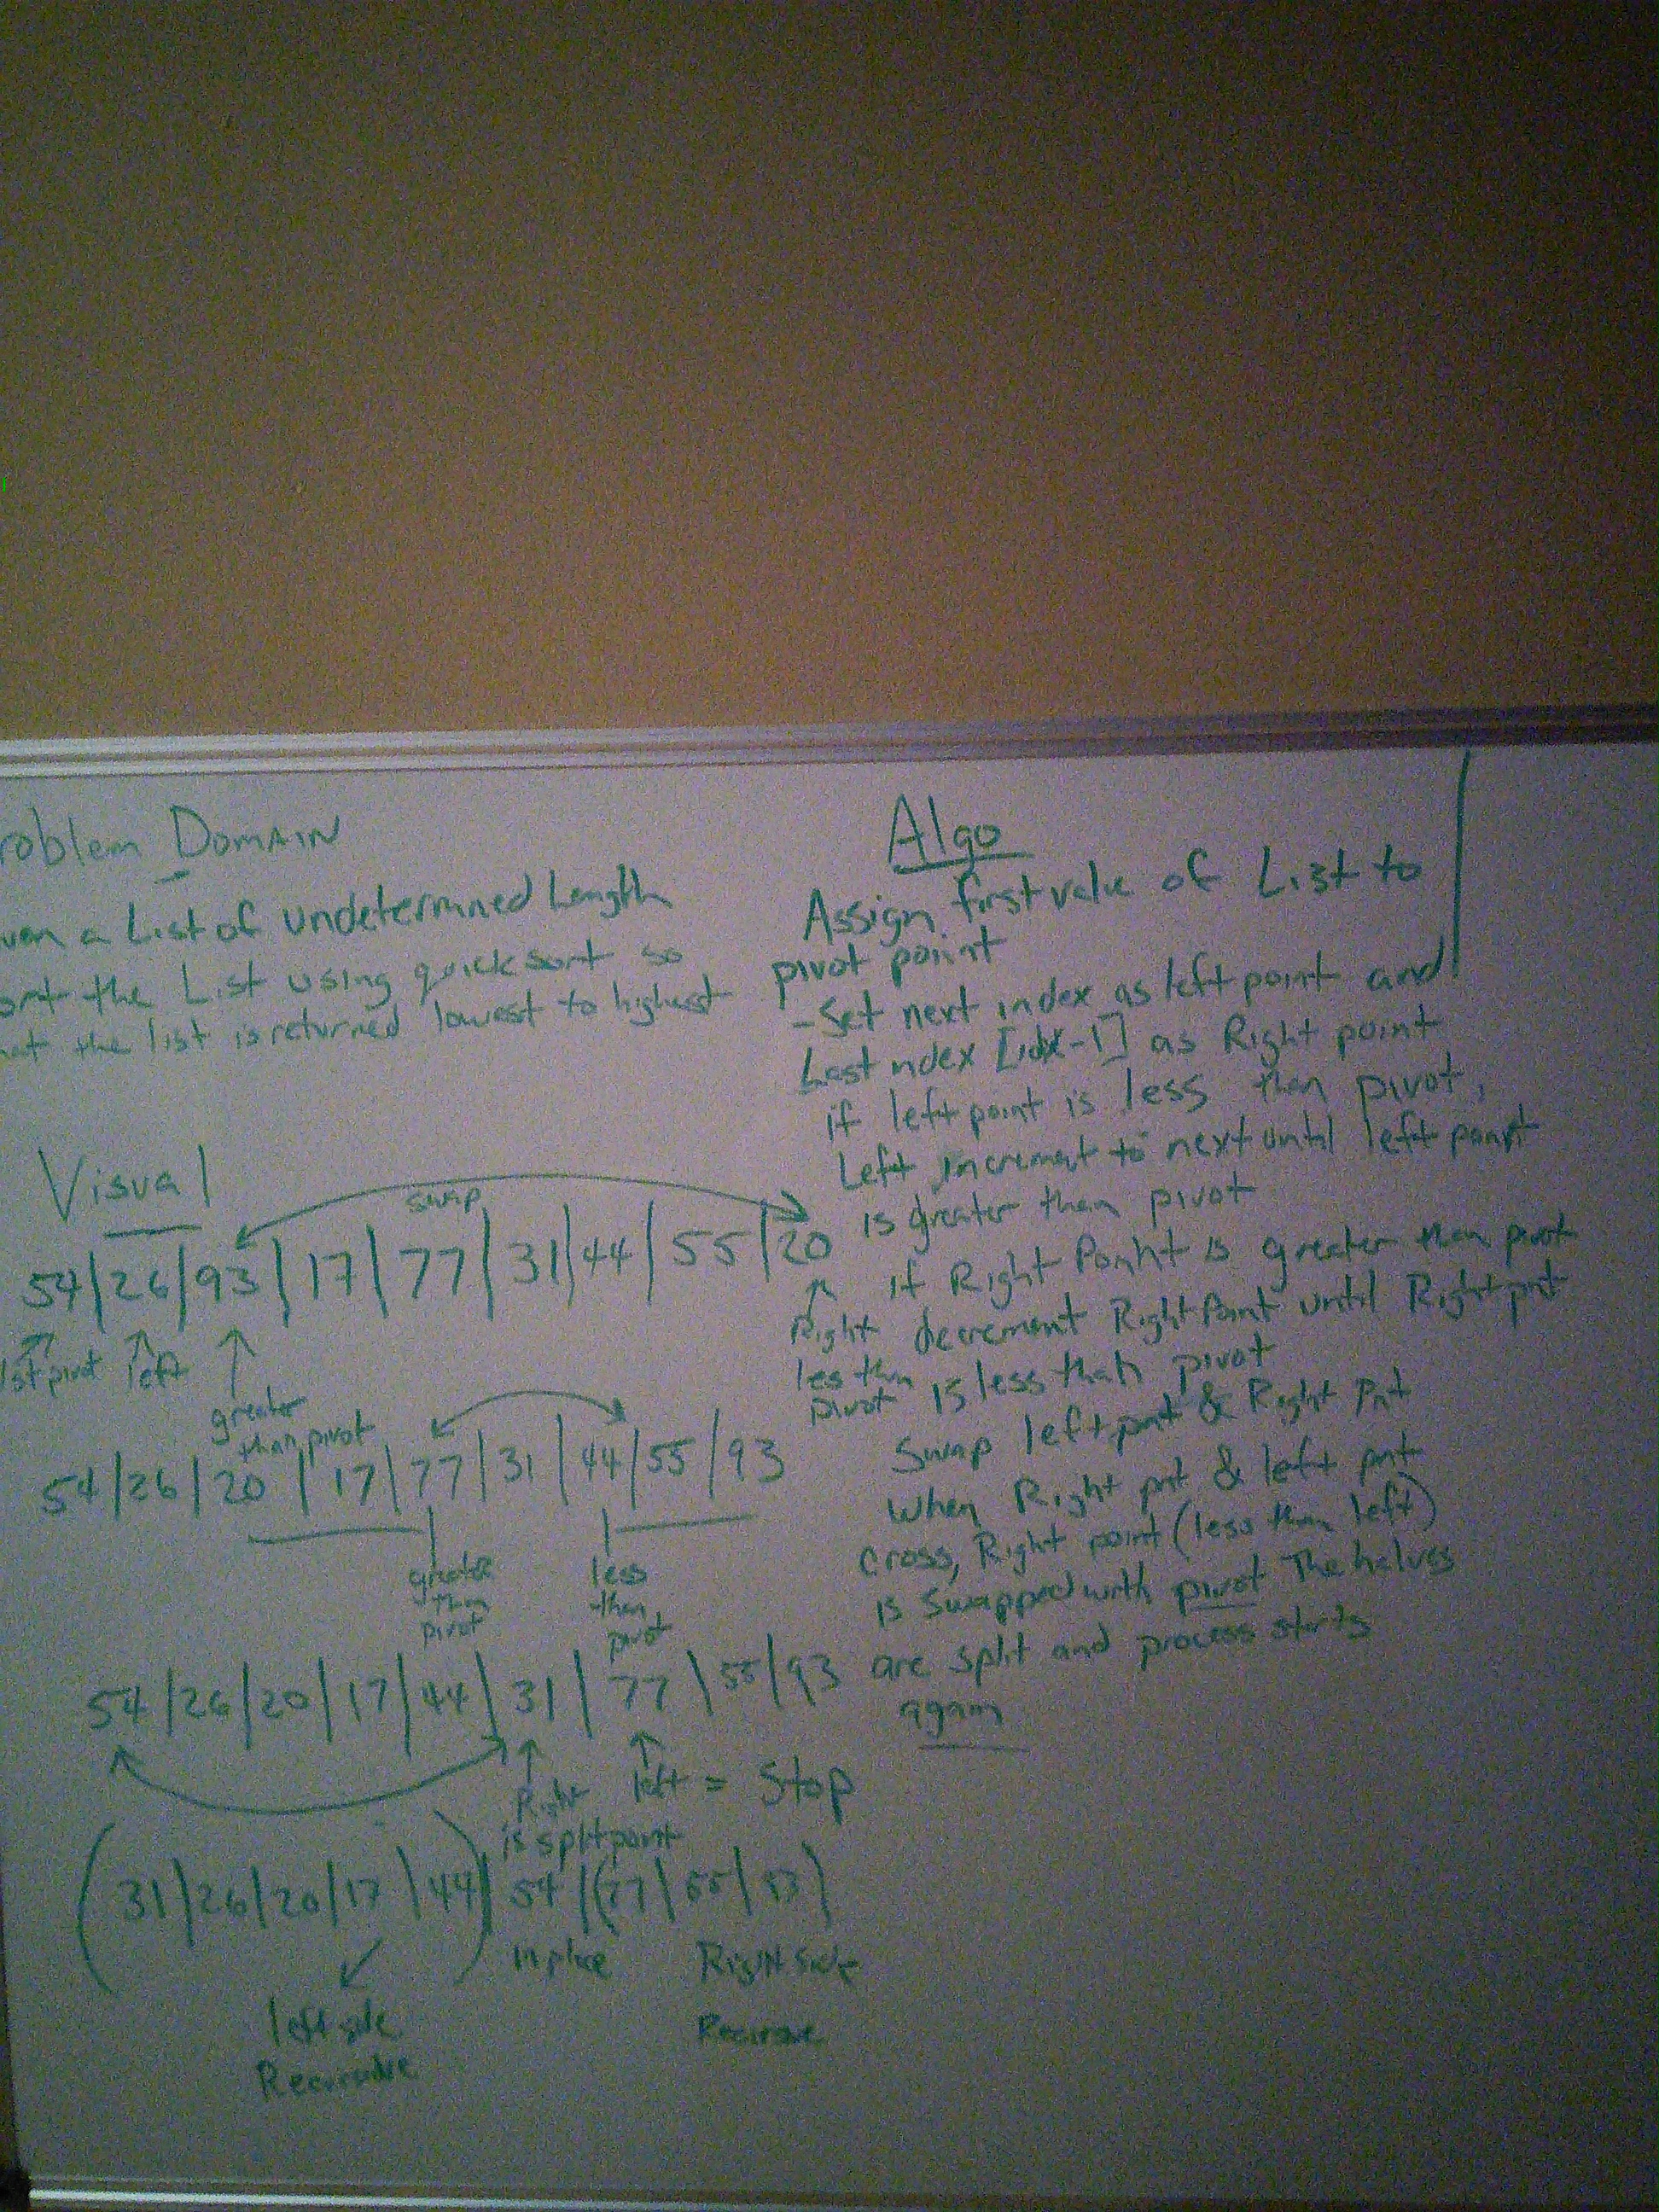 roblem Domain
ven a List of undetermined Length
ort the List using quick sort so
hat the list is returned lowest to highest
Visual
swap
54|26|93|17|77|31|44|55|20
1st pivot left
greater
than pivot
Right
less than
pivot
54|26|20|17|77|31|44|55|93
greater
than
pivot
less
than
pivot
54|26|20|17|44|31|77|55|93
Right left = Stop
is split point
(31|26|20|17|44)|54|(77|55|93)
in place
Right Side
left side
Recursive
Algo
Assign first value of List to
pivot point
- Set next index as left point and
Last ndex [idx-1] as Right point
if left point is less than pivot,
Left increment to next until left point
is greater than pivot
if Right Point is greater than pivot
decrement Right Point until Right pnt
is less than pivot
Swap left pnt & Right Pnt
When Right pnt & left pnt
cross, Right point (less than left)
is swapped with pivot The halves
are split and process starts
again